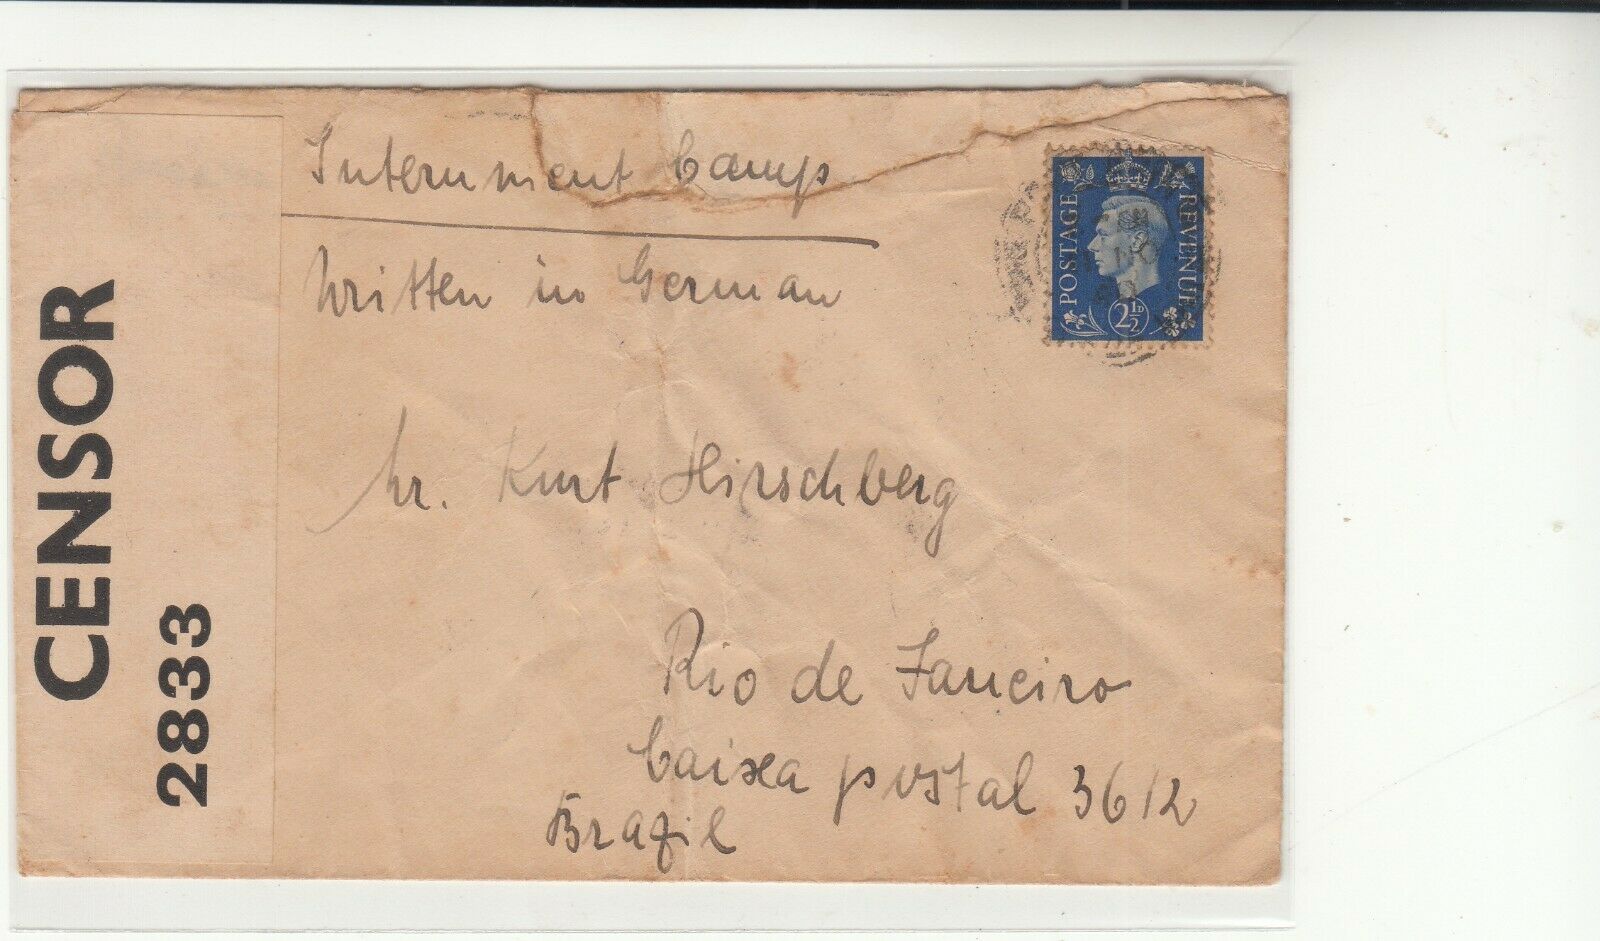 CENSOR
2833
Internment Camp
Written in German
POSTAGE
REVENUE
2½D
Hr. Kurt Hirschberg
Rio de Janeiro
Caixa postal 3612
Brazil